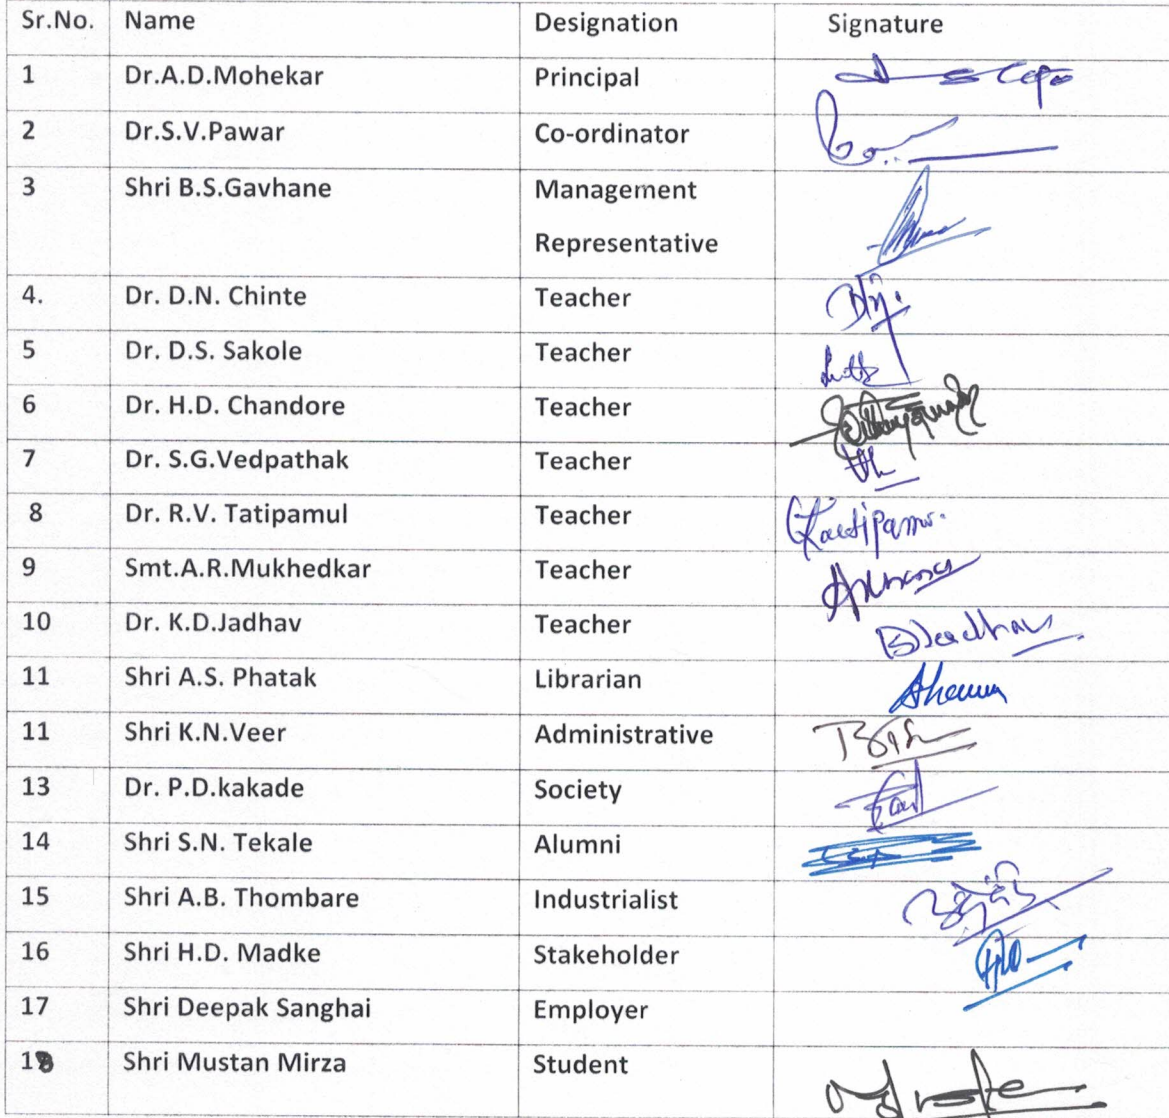 Sr.No. Name Designation Signature
1 Dr.A.D.Mohekar Principal
2 Dr.S.V.Pawar Co-ordinator
3 Shri B.S.Gavhane Management
Representative
4. Dr. D.N. Chinte Teacher
5 Dr. D.S. Sakole Teacher
6 Dr. H.D. Chandore Teacher
7 Dr. S.G.Vedpathak Teacher
8 Dr. R.V. Tatipamul Teacher
9 Smt.A.R.Mukhedkar Teacher
10 Dr. K.D.Jadhav Teacher
11 Shri A.S. Phatak Librarian
11 Shri K.N.Veer Administrative
13 Dr. P.D.kakade Society
14 Shri S.N. Tekale Alumni
15 Shri A.B. Thombare Industrialist
16 Shri H.D. Madke Stakeholder
17 Shri Deepak Sanghai Employer
18 Shri Mustan Mirza Student